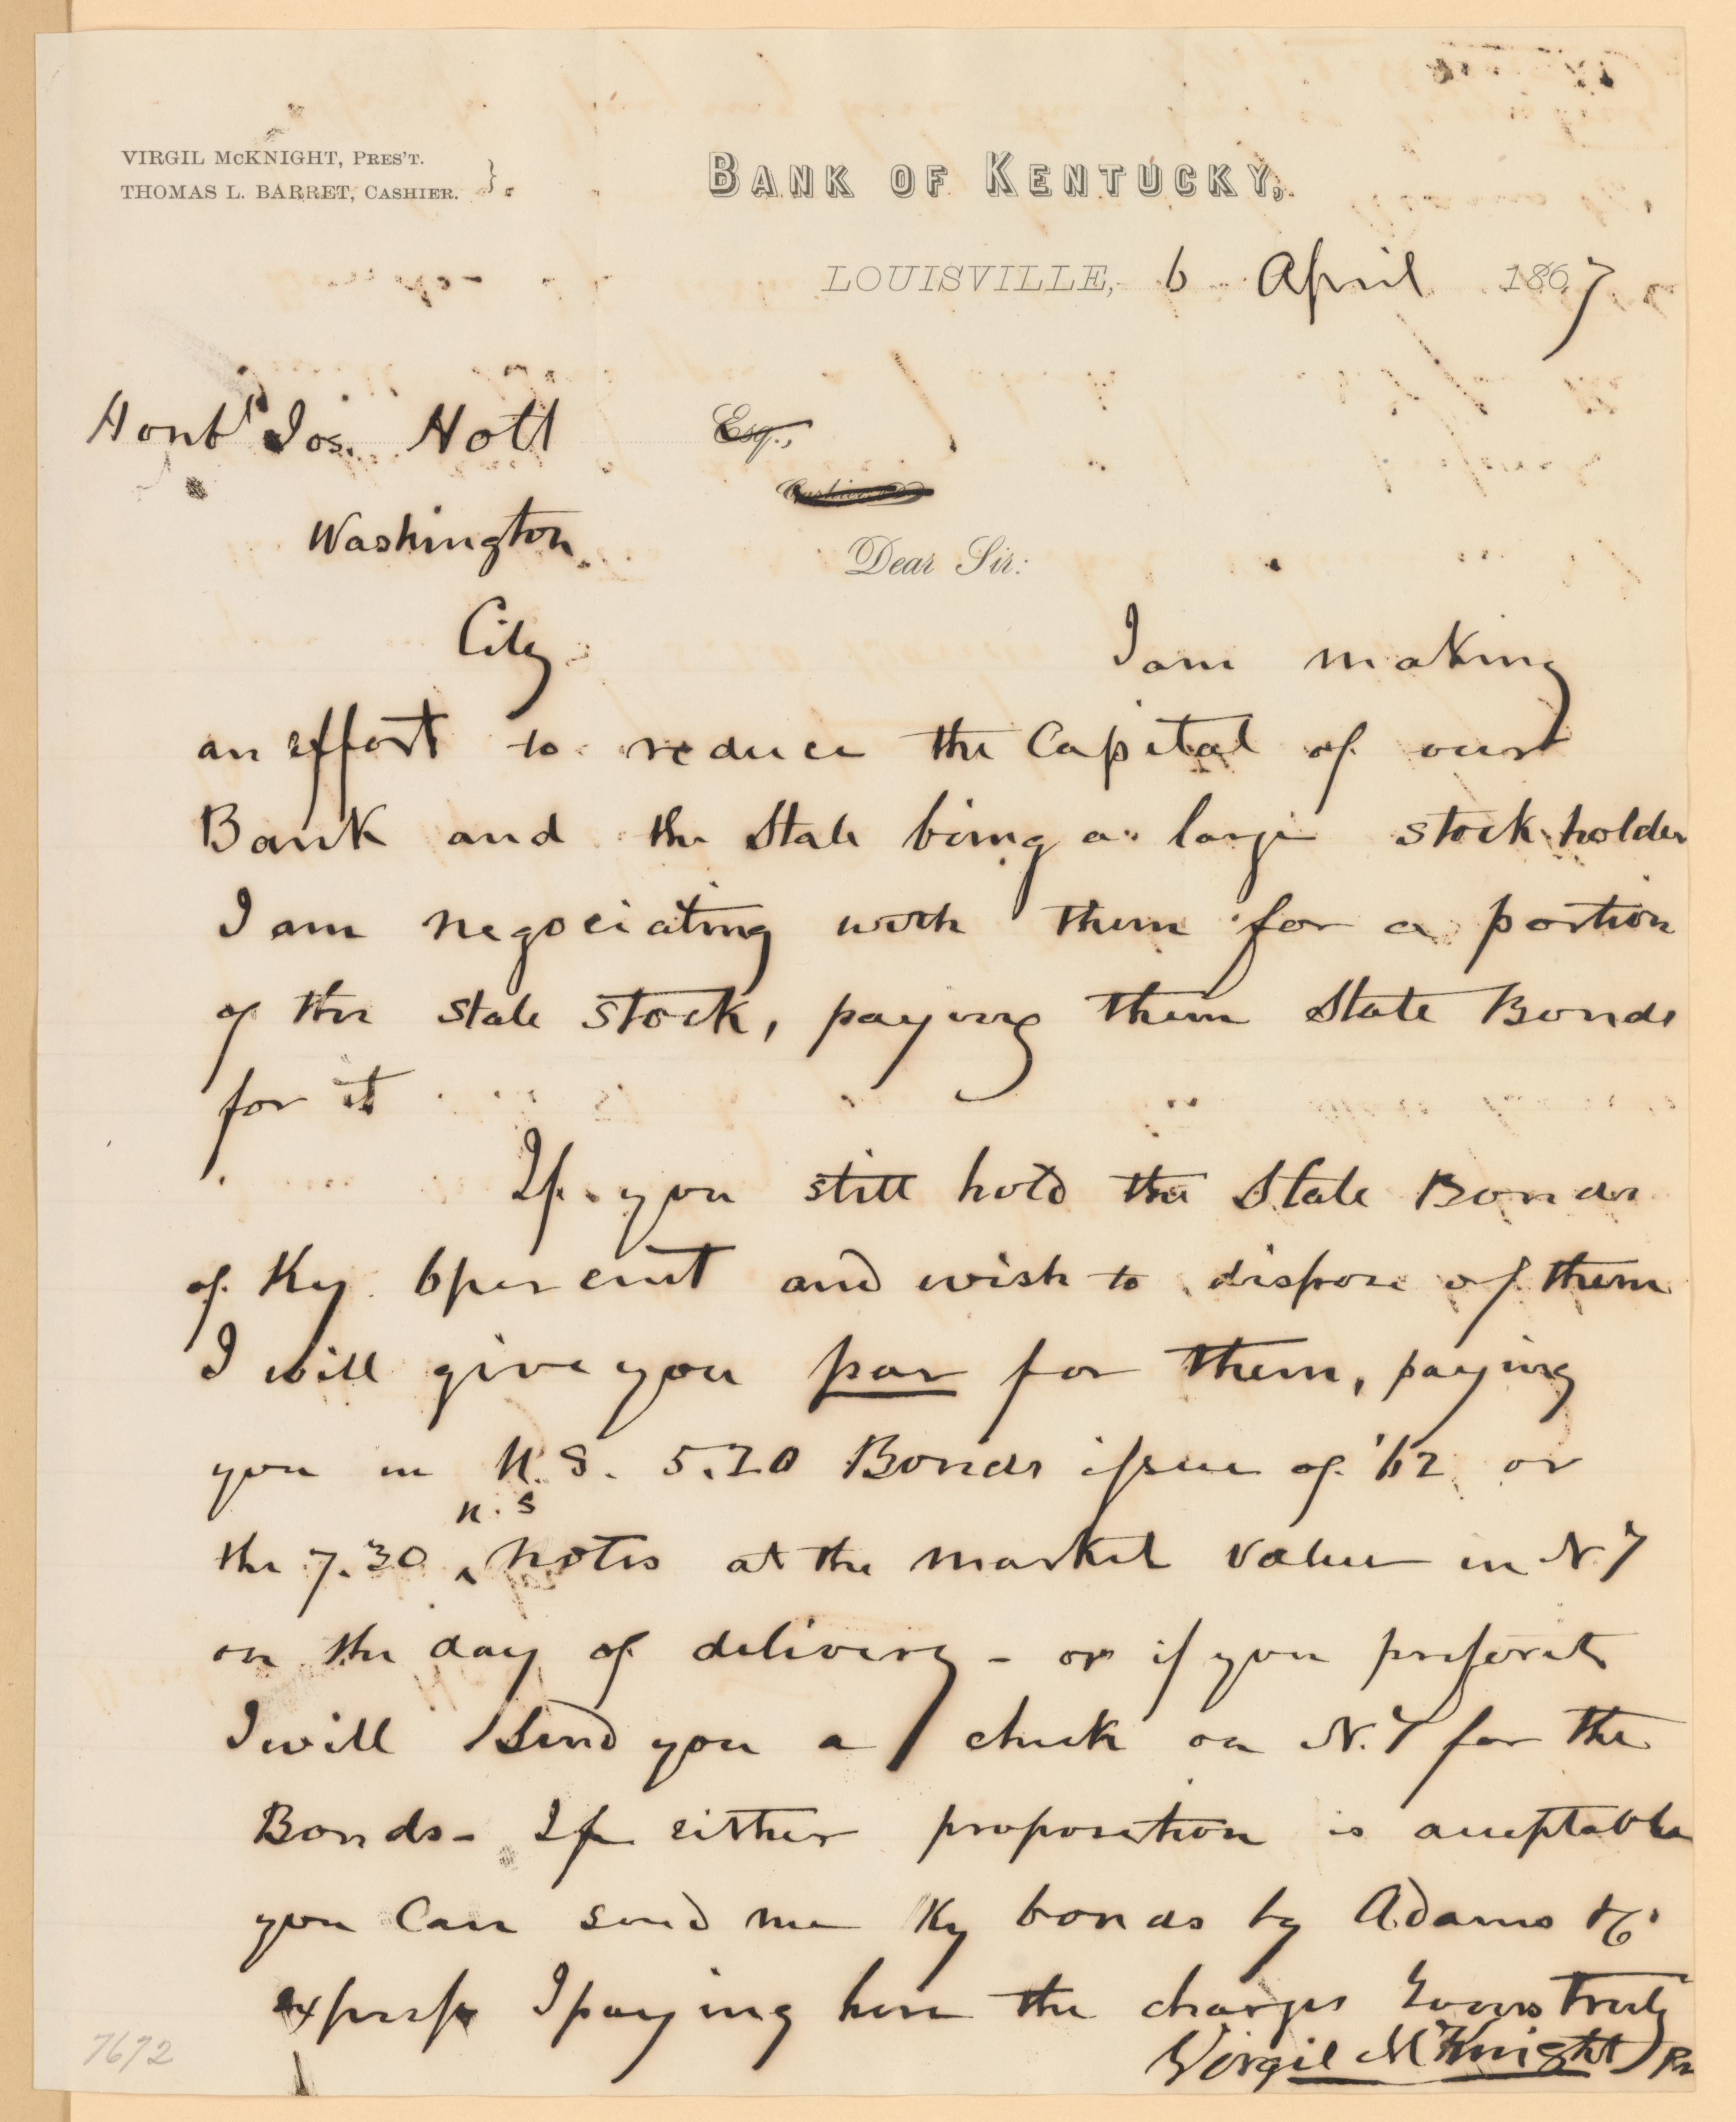 VIRGIL McKNIGHT, PRES'T.
THOMAS L. BARRET, CASHIER.
BANK OF KENTUCKY,
LOUISVILLE, 6 April 1867
Honbl Jos. Holt Esq.,
Washington
Dear Sir:
City
I am making
an effort to reduce the Capital of our
Bank and the State being a large stockholder
I am negociating with them for a portion
of the state stock, paying them State Bonds
for it
If you still hold the State Bonds
of Ky 6 per cent and wish to dispose of them
I will give you par for them, paying
you in U.S. 5.20 Bonds issue of '62 or
U.S
the 7.30 ‸ notes at the market value in NY
on the day of delivery - or if you prefer it
I will send you a check on N.Y for the
Bonds - If either proposition is acceptable
you can send me Ky bonds by Adams & Co
express I paying here the charges Yours truly
Virgil McKnight Pr
7672